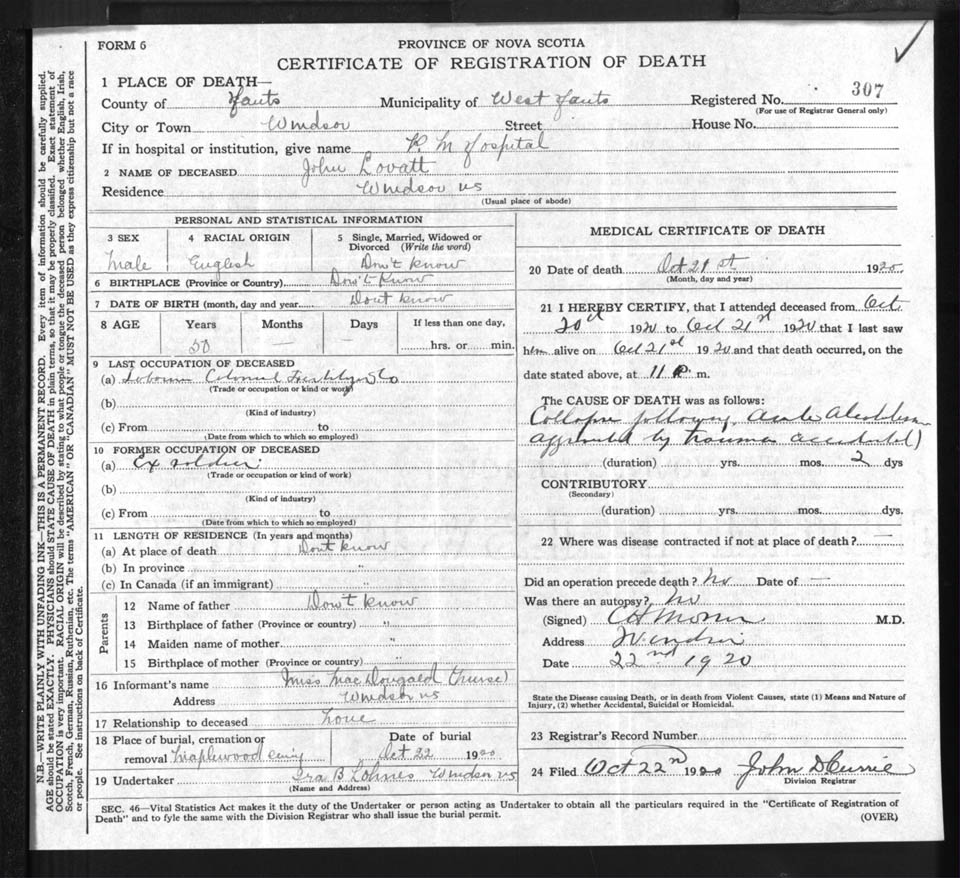 FORM 6
PROVINCE OF NOVA SCOTIA
CERTIFICATE OF REGISTRATION OF DEATH
1 PLACE OF DEATH—
County of Hants Municipality of West Hants Registered No. 307
(For use of Registrar General only)
City or Town Windsor Street House No.
If in hospital or institution, give name P. M Hospital
2 NAME OF DECEASED John Lovatt
Residence Windsor NS
(Usual place of abode)
PERSONAL AND STATISTICAL INFORMATION
3 SEX 4 RACIAL ORIGIN 5 Single, Married, Widowed or Divorced (Write the word)
Male English Don't know
6 BIRTHPLACE (Province or Country) Don't Know
7 DATE OF BIRTH (month, day and year) Dont know
8 AGE Years Months Days If less than one day,
50 — — hrs. or min.
9 LAST OCCUPATION OF DECEASED
(a) Laborer Colonial Co
(Trade or occupation or kind or work)
(b)
(Kind of industry)
(c) From to
(Date from which to which so employed)
10 FORMER OCCUPATION OF DECEASED
(a) Ex soldier
(Trade or occupation or kind of work)
(b)
(Kind of industry)
(c) From to
(Date from which to which so employed)
11 LENGTH OF RESIDENCE (In years and months)
(a) At place of death Dont know
(b) In province "
(c) In Canada (if an immigrant) "
Parents
12 Name of father Don't know
13 Birthplace of father (Province or country) "
14 Maiden name of mother "
15 Birthplace of mother (Province or country) "
16 Informant's name Miss MacDougald (Nurse)
Address Windsor NS
17 Relationship to deceased None
18 Place of burial, cremation or removal Maplewood Cemy
Date of burial Oct 22 1920
19 Undertaker Ira B Lohnes Windsor NS
(Name and Address)
MEDICAL CERTIFICATE OF DEATH
20 Date of death Oct 21st 1920
(Month, day and year)
21 I HEREBY CERTIFY, that I attended deceased from Oct
20th 1920 to Oct 21st 1920 that I last saw
him alive on Oct 21st 1920 and that death occurred, on the
date stated above, at 11 P. m.
The CAUSE OF DEATH was as follows:
Collapse following acute Alcoholism
aggravated by trauma accidental)
(duration) yrs. mos. 2 dys
CONTRIBUTORY
(Secondary)
(duration) yrs. mos. dys.
22 Where was disease contracted if not at place of death? —
Did an operation precede death? No Date of —
Was there an autopsy? No
(Signed) M.D.
Address Windsor
Date 22nd 1920
State the Disease causing Death, or in death from Violent Causes, state (1) Means and Nature of
Injury, (2) whether Accidental, Suicidal or Homicidal.
23 Registrar's Record Number
24 Filed Oct 22n 1920 John D Currie
Division Registrar
SEC. 46—Vital Statistics Act makes it the duty of the Undertaker or person acting as Undertaker to obtain all the particulars required in the "Certificate of Registration of
Death" and to fyle the same with the Division Registrar who shall issue the burial permit.
(OVER)
N.B.—WRITE PLAINLY WITH UNFADING INK—THIS IS A PERMANENT RECORD. Every item of information should be carefully supplied.
AGE should be stated EXACTLY. PHYSICIANS should STATE CAUSE OF DEATH in plain terms, so that it may be properly classified. Exact statement of
OCCUPATION is very important. RACIAL ORIGIN will be described by stating to what people or tongue the deceased person belonged whether English, Irish,
Scotch, French, German, Russian, Ruthenian, etc. The terms "AMERICAN" OR "CANADIAN" MUST NOT BE USED as they express citizenship but not a race
or people. See instructions on back of Certificate.